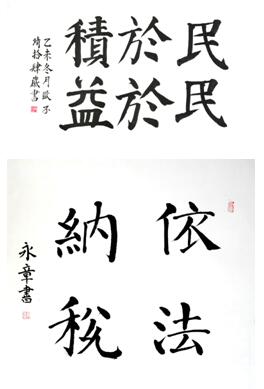 積於民
益於民
乙未冬月歐子
琦拾肆歲書
依法
納稅
永章書